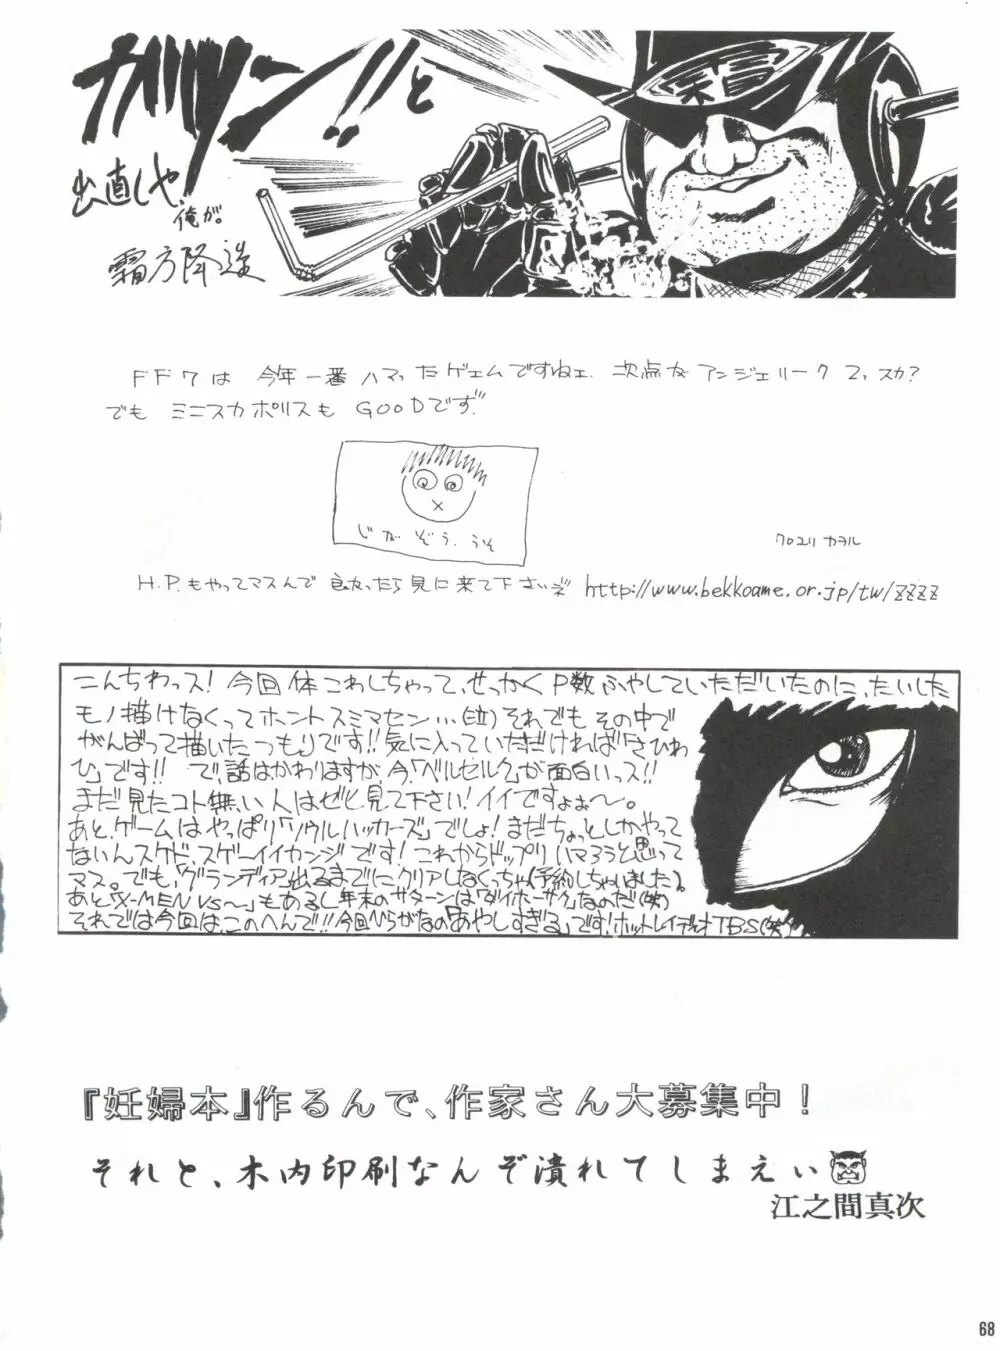 ガツン!!と
出直しや、
俺が。
霜方降造
FF7は 今年一番ハマったゲェムですねェ. 次点がアンジェリーク2っスカ?
でも ミニスカポリスも GOODです。
じがぞう.うそ
クロユリ カヲル
H.P.もやってマスんで 良かったら見に来て下さいぞ http://www.bekkoame.or.jp/tw/zzzz
こんちわっス! 今回体こわしちゃって、せっかくP数ふやしていただいたのに、たいした
モノ描けなくってホントスミマセン…(泣)それでもその中で
がんばって描いたつもりです!!気に入っていただければ「さひわ
ひ」です!! で、話はかわりますが、今、「ベルセルク」が面白いっス!!
まだ見たコト無い人はぜひ見て下さい!イイですよぉ〜。
あと、ゲームはやっぱり「ソウルハッカーズ」でしょ!まだちょっとしかやって
ないんスケド、スゲーイイカンジです!これからドップリハマろうと思って
マス。でも、「グランディア」出るまでにクリアしなくっちゃ(予約しちゃいました)。
あと「X-MEN VS〜」もあるし年末のサターンは「ダイホーサク」なのだ(笑)
それでは今回はこのへんで!!今回ひらがなの「あやしすぎる」です!ホットレイディオTBS(笑)
『妊婦本』作るんで、作家さん大募集中!
それと、木内印刷なんぞ潰れてしまえぃ
江之間真次
68